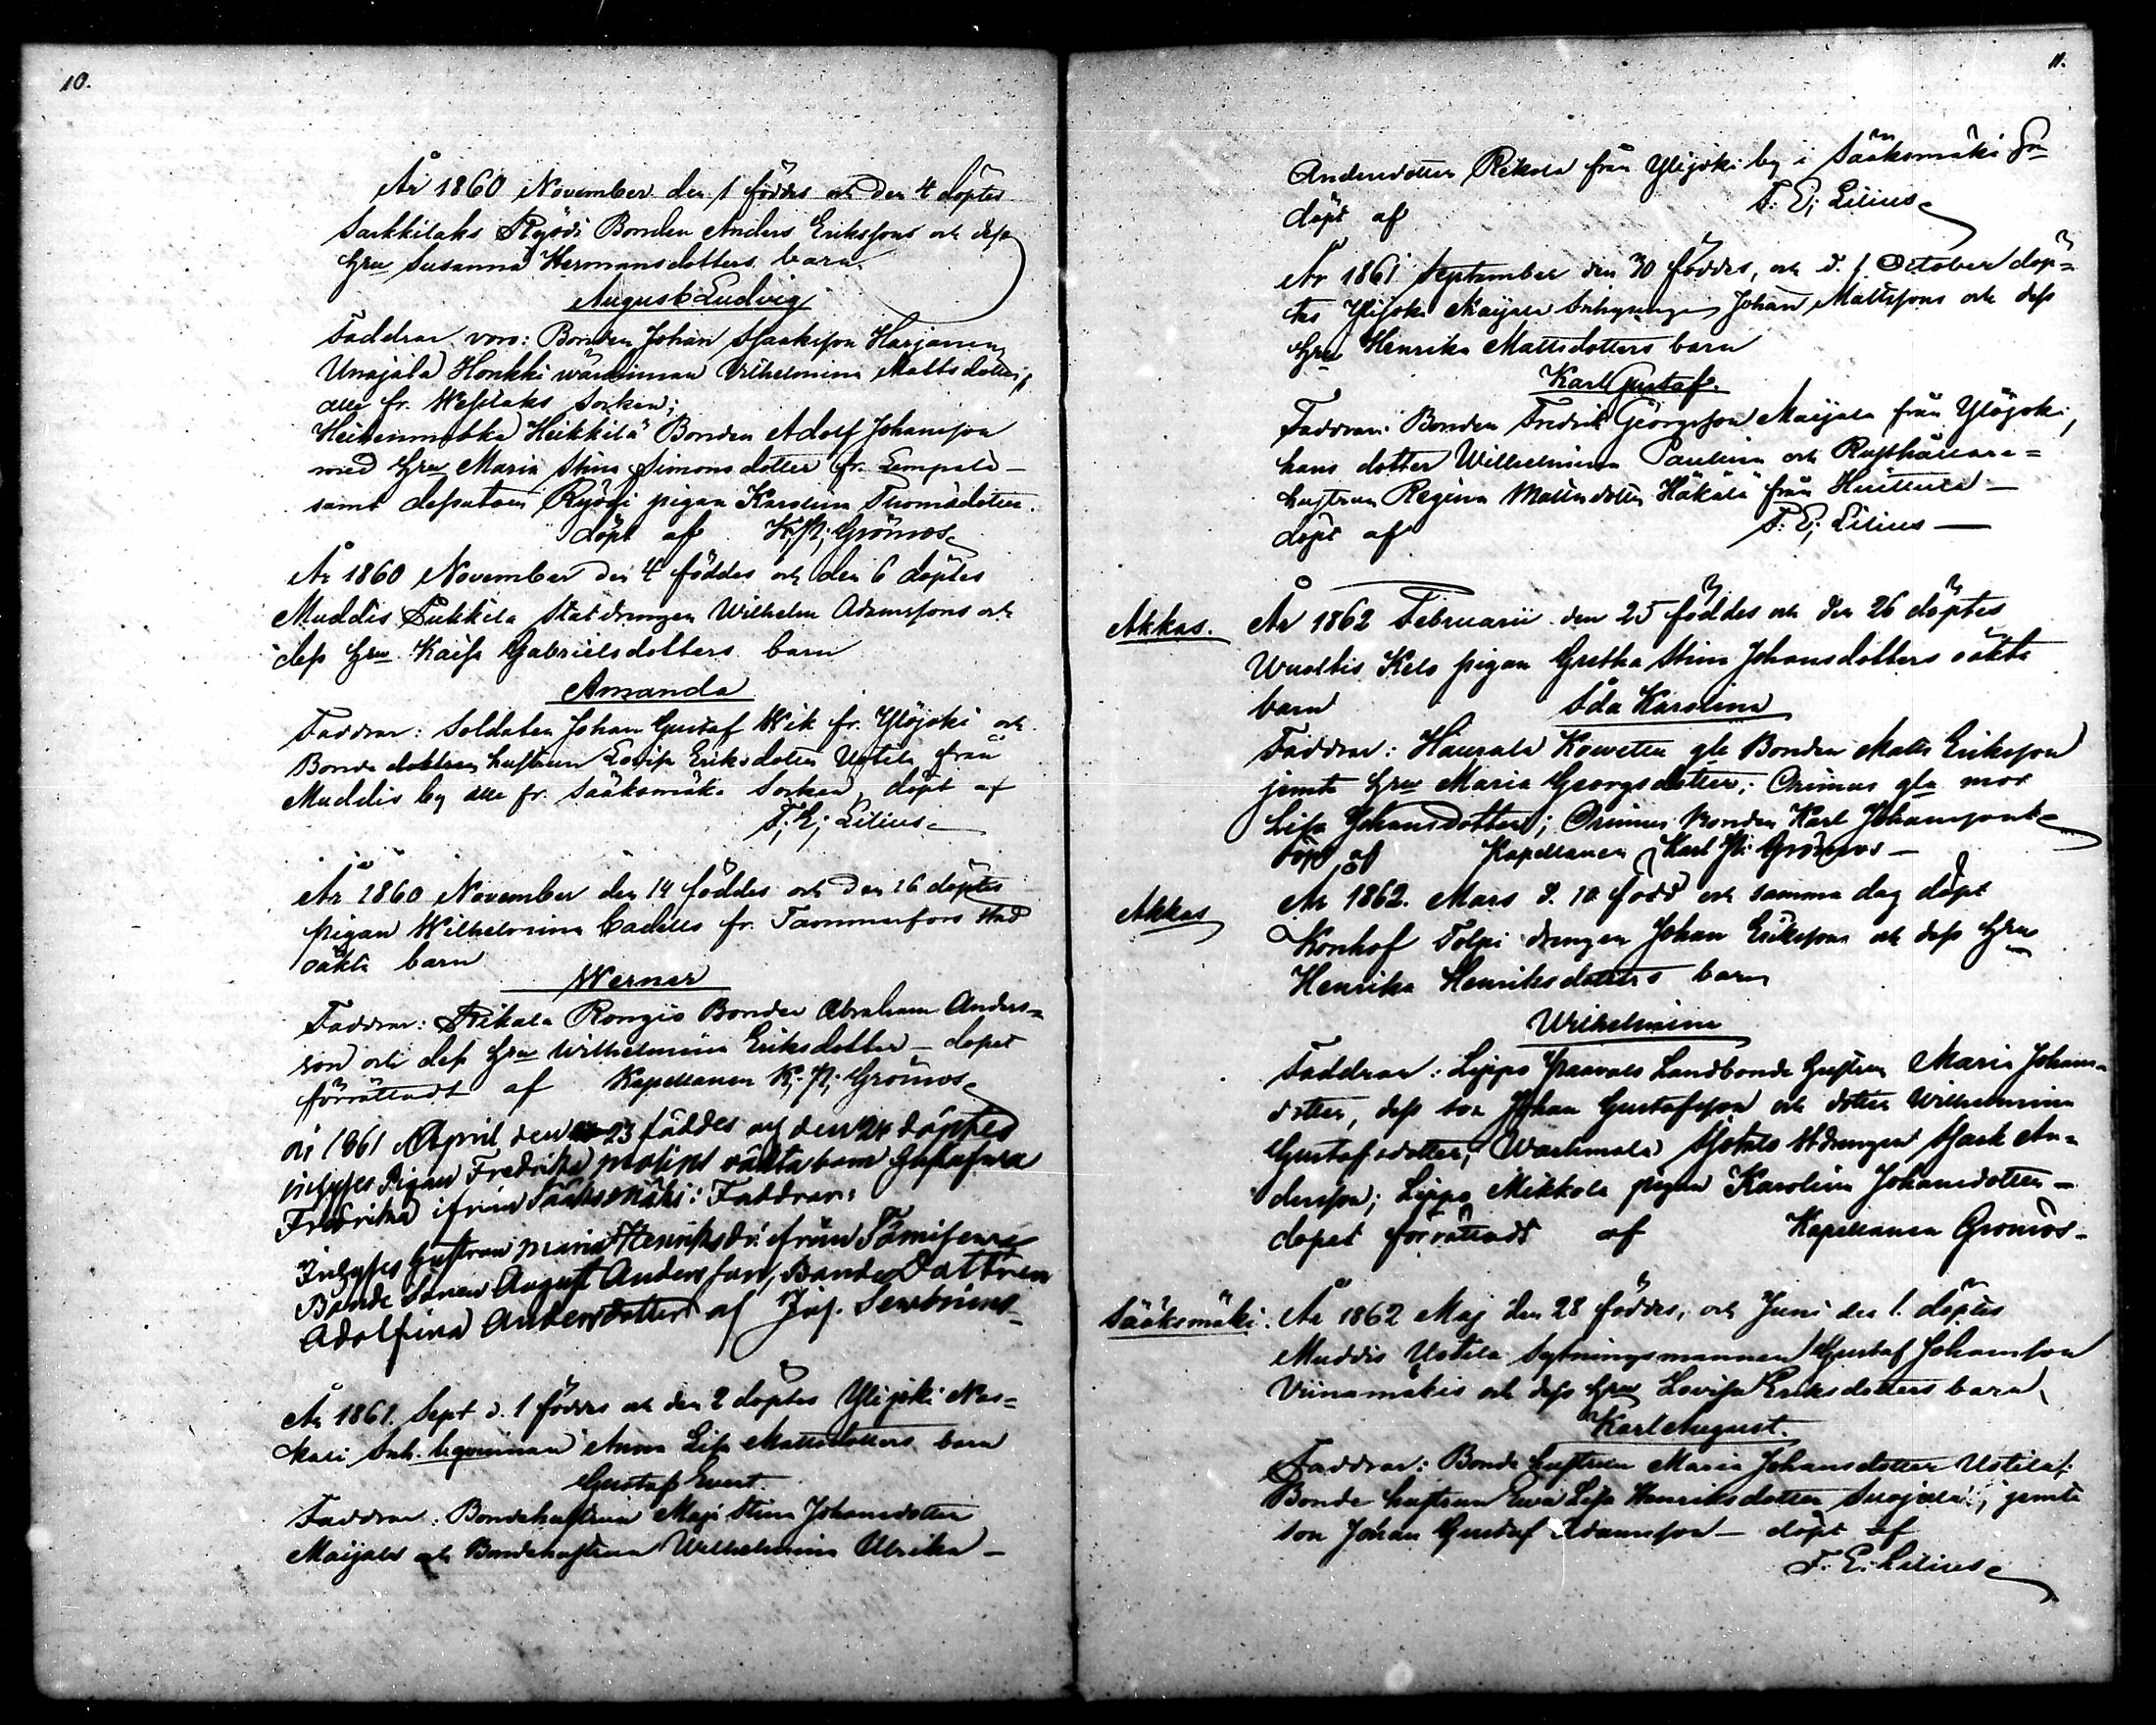 10.
År 1860 November den 1 föddes och den 4 döptes
Sarkkilaks Ryödi Bonden Anders Erikssons och dess
Hru Susanna Hermansdotters barn
August Ludvig
Faddrar voro: Bonden Johan Isaaksson Harjanen
Unajala Honkki wärdinnan Vilhelmina Mattsdotter
alla fr. Wesilaks Socken;
Heikkilä Bonden Adolf Johansson
med Hru Maria Stina Simonsdotter fr. Lempälä
samt dessutom Ryödi pigan Karolina Thomasdotter.
döpt af K. N. Grönros
År 1860 November den 4 föddes och den 6 döptes
Muddis Sukkila Statdrengen Wilhelm Adamssons och
dess Hru Kaisa Gabrielsdotters barn
Amanda
Faddrar: Soldaten Johan Gustaf Wik fr. Ylöjoki och
Bonde hustrun Lovisa Eriksdotter Ustila från
Muddis by alla fr. Sääksmäki Socken, döpt af
F. E. Lilius
År 1860 November den 14 föddes och den 16 döptes
pigan Wilhelmina Cadells fr. Tammerfors stad
oäkta barn
Werner
Faddrar: Rikala Rongio Bonden Abraham Anders=
son och dess Hru Wilhelmina Eriksdotter – dopet
förrättadt af Kapellanen K. N. Grönros
År 1861 April den 23 föddes och den 24 döptes
Inhyses Pigan Fredrika oäkta barn
Fredrika ifrån Sääksmäki: Faddrar:
Inhyses hustrun Maria Henriksdr. ifrån
Bonde Sonen August Andersson, Bonde Dottren
Adolfina Andersdotter af Jos.
År 1861. Sept d. 1 föddes och den 2 döptes Ylijoki
Anna Lisa Mattsdotters barn
Gustaf Evert.
Faddrar: Bondehustrun Maja Stina Johansdotter
Maijala och Bondehustrun Wilhelmina Ulrika –
11.
Andersdotter Rekola från Ylijoki by i Sääksmäki Sn
döpt af F. E. Lilius
År 1861 September den 30 föddes, och d. 1 October döp=
tes Ylijoki Maijala Inhysing Johan Mattssons och dess
Hru Henrika Mattsdotters barn
Karl Gustaf.
Faddrar: Bonden Fredrik Georgsson Maijala från Ylöjoki,
hans dotter Wilhelmina Paulina och Rusthållare=
hustrun Regina Mattsdotter Häkälä från Huittula –
döpt af F. E. Lilius –
Akkas. År 1862 Februarii den 25 föddes och den 26 döptes
Wualtis Kelo pigan Gretha Stina Johansdotters oäkta
barn Ida Karolina
Faddrar: Haurala Koivela gle Bonden Matts Eriksson
jemte Hru Maria Georgsdotter; Orimus gla mor
Lisa Johansdotter; Orimus Bonden Karl Johansson
döpt af Kapellanen Karl N. Grönros –
Akkas År 1862. Mars d. 10 född och samma dag döpt
Konhof Tolpi drengen Johan Erikssons och dess Hru
Henrika Henriksdotters barn
Wilhelmina
Faddrar: Lippo Paavols Landbonde hustrun Maria Johans=
dotter, dess son Johan Gustafsson och dotter Wilhelmina
Gustafsdotter; Isak An=
dersson; Lippo Mikkola pigan Karolina Johansdotter –
dopet förrättadt af Kapellanen Grönros –
Sääksmäki. År 1862 Maj den 28 föddes, och Juni den 1. döptes
Muddis Ustila Sytningsmannen Gustaf Johansson
Viinamäkis och dess Hru Lovisa Eriksdotters barn
Karl August.
Faddrar: Bonde hustrun Maria Johansdotter Ustila;
Bonde hustrun Ewa Lisa Henriksdotter jemte
son Johan Gustaf Adamsson – döpt af
F. E. Lilius